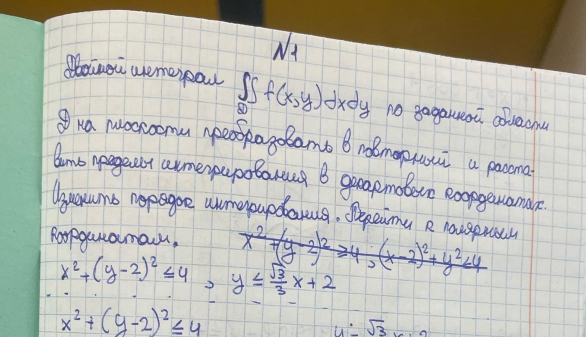 N1
Двойной интеграл ∬ f(x,y)dxdy по заданной области
D
D на плоскости преобразовать в повторный и расста-
вить пределы интегрирования в декартовых координатах.
Изменить порядок интегрирования. Перейти к полярным
координатам. x² + (y-2)² ≥ 4; (x-2)² + y² ≤ 4
x² + (y-2)² ≤ 4 , y ≤ √3/3 x + 2
x² + (y-2)² ≤ 4